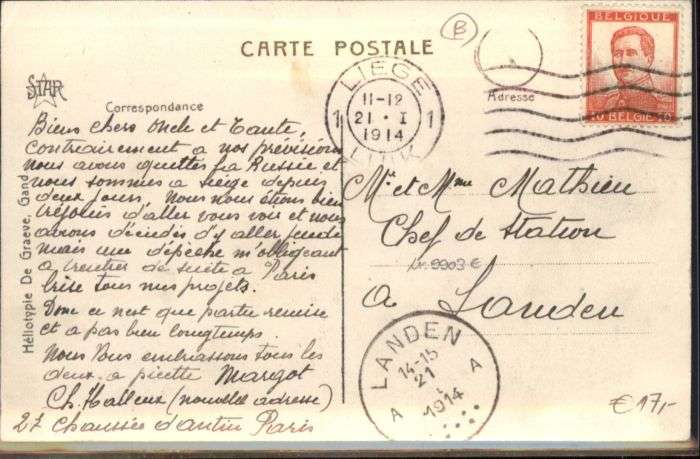 B
CARTE POSTALE
STAR
Correspondance
Adresse
BELGIQUE
10 BELGIE 10
LIEGE
11-12
1 21 · I 1
1914
LUIK
Biens chers Oncle et Tante,
Contrairement a nos prévisions
nous avons quittes la Russie et
nous sommes a Liege depuis
deux jours, Nous nous étions bien
réjouis d'aller vous voir et nous
avions décidés d'y aller jeudi
mais une dépêche m'obligeant
a rentrer de suite a Paris
brise tous mes projets.
Donc ce n'est que partie remise
et a pas bien longtemps.
Nous Vous embrassons tous les
deux a picette Margot
Ch. Halleux (nouvelle adresse)
27 Chaussée d'antin Paris
Mr et Mme Mathieu
Chef de Station
a Landen
LANDEN
14-15
21
1914
A A
€ 17,-
Héliotypie De Graeve, Gand